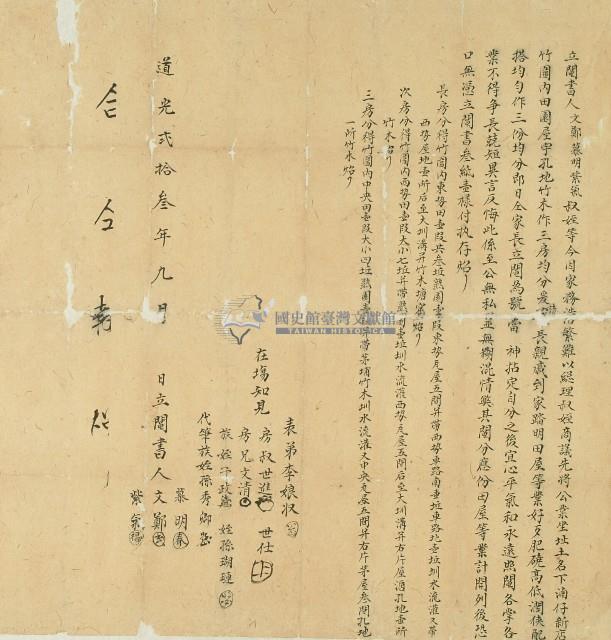 立鬮書人文鄭慕明紫氣叔姪等今因家務浩繁難以総理叔姪商議先將公業坐址土名下湳仔新店
竹圍內田園屋宇孔地竹木作三房均分爰請長親戚到家踏明田屋等業好歹肥磽高低濶狹配
搭均勻作三份均分即日仝家長立鬮為號當神拈定自分之後宜心平氣和永遠照鬮各掌各
業不得争長競短異言反悔此係至公無私並無糊混情獘其鬮分應份田屋等業計開列後恐
口無憑立鬮書叁紙壹樣付执存炤
長房分得竹圍內東勢田壹段共叁坵熟園壹段東勢瓦屋五間并帶西勢車路南壹坵車路北壹坵圳水流灌又帶
西勢屋地壹所后至大圳溝并竹木 炤
次房分得竹圍內西勢田壹段大小七坵并帶熟園壹坵圳水流灌西勢瓦屋五間后至大圳溝并右片屋 孔地壹所
竹木炤
三房分得竹圍內中央田壹段大小四坵熟園 帶茅埔竹木圳水流灌又中央瓦屋五間并右片茅屋叁間孔地
一所竹木炤
表弟李娘
在塲知見 房叔世進 世仕
房兄文清
族姪 姪孫瑚璉
代筆族姪孫秀卿
慕明
道光弍拾叁年九月 日立鬮書人文鄭
紫氣
合仝
國史館臺灣文獻館
TAIWAN HISTORICA